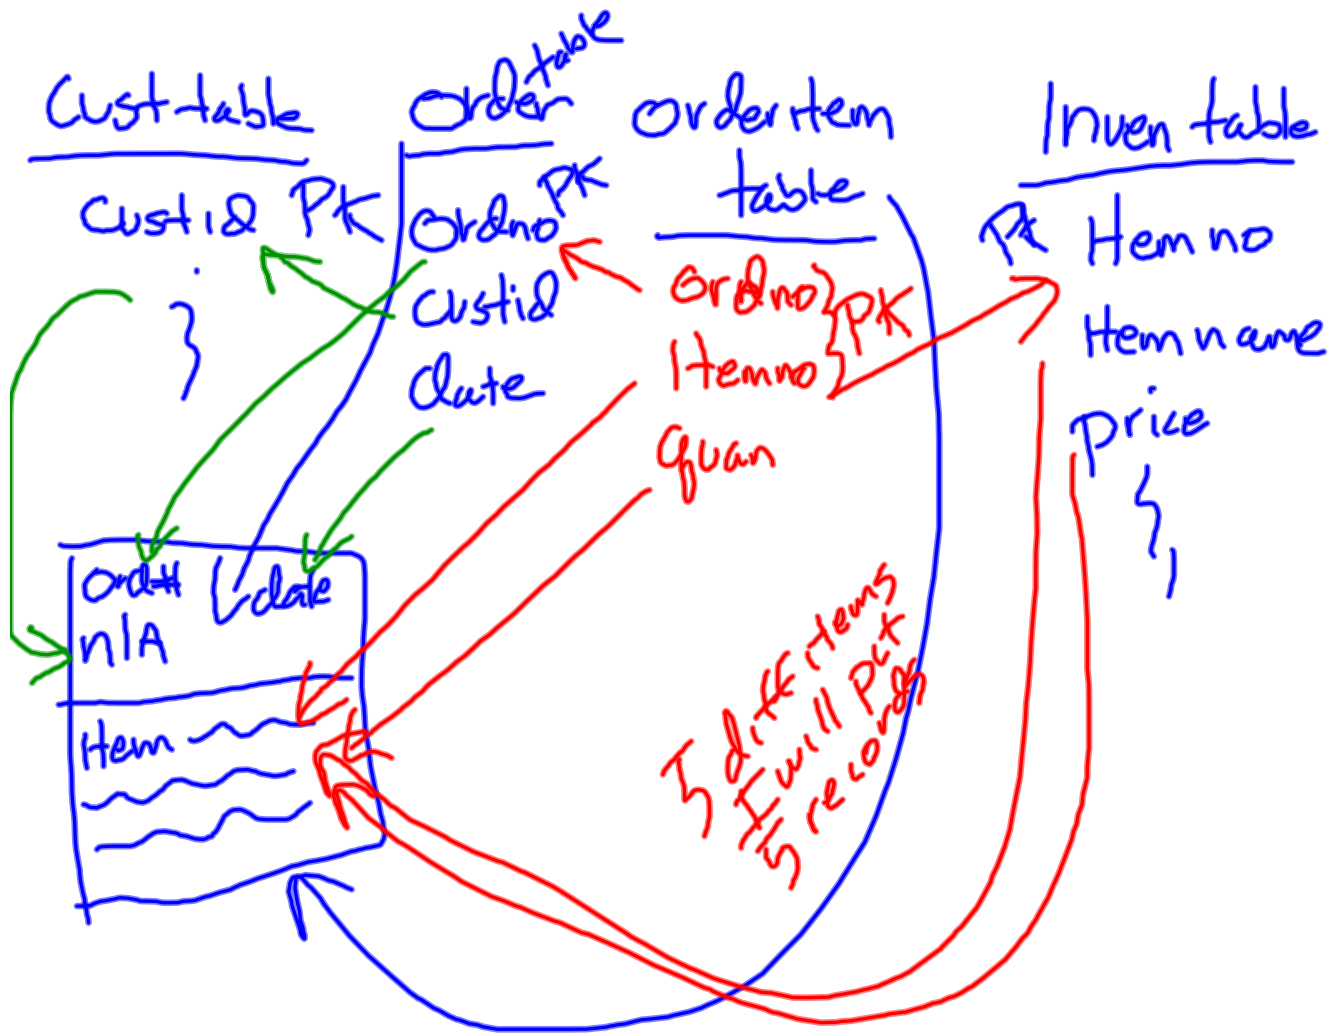 Cust table
Custid PK
Order table
Ordno PK
Custid
date
Order item
table
Ordno
Itemno
PK
quan
Inven table
PK Itemno
Item name
price
Ord# date
n/A
Item
5 diff items
I will put
5 records